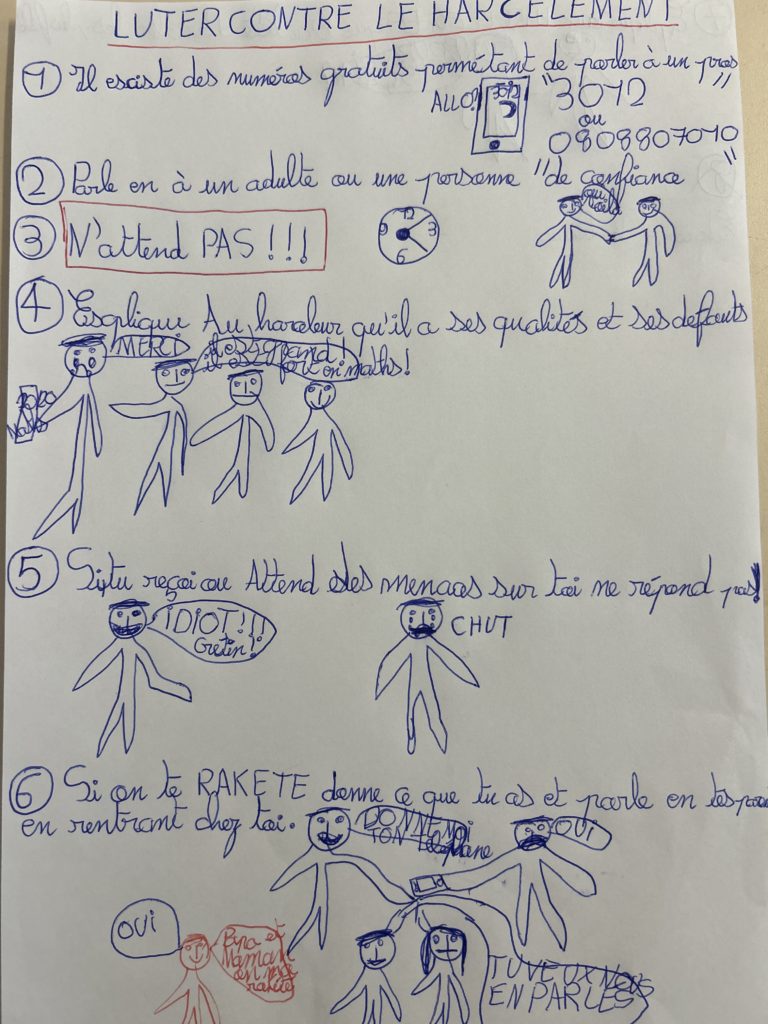 LUTER CONTRE LE HARCELEMENT
① Il esciste des numéros gratuits permétant de parler à un pros
ALLO? 3012 "3012"
ou
0808807010
② Parle en à un adulte ou une personne "de confiance"
oui
③ N'attend PAS !!!
12
9 3
6
④ Esxplique Au harceleur qu'il a ses qualités et ses deffauts
MERCI il est grand!
il est fort en maths!
⑤ Si tu reçoi ou Attend des menaces sur toi ne répond pas!
IDIOT!!!
Cretin!
CHUT
⑥ Si on te RAKETE donne ce que tu as et parle en tes
en rentrant chez toi.
DONNE MOI
TON téléphone
OUI
OUI
Papa et
Maman
on m'a
raketé
TU VEUX NOUS
EN PARLES